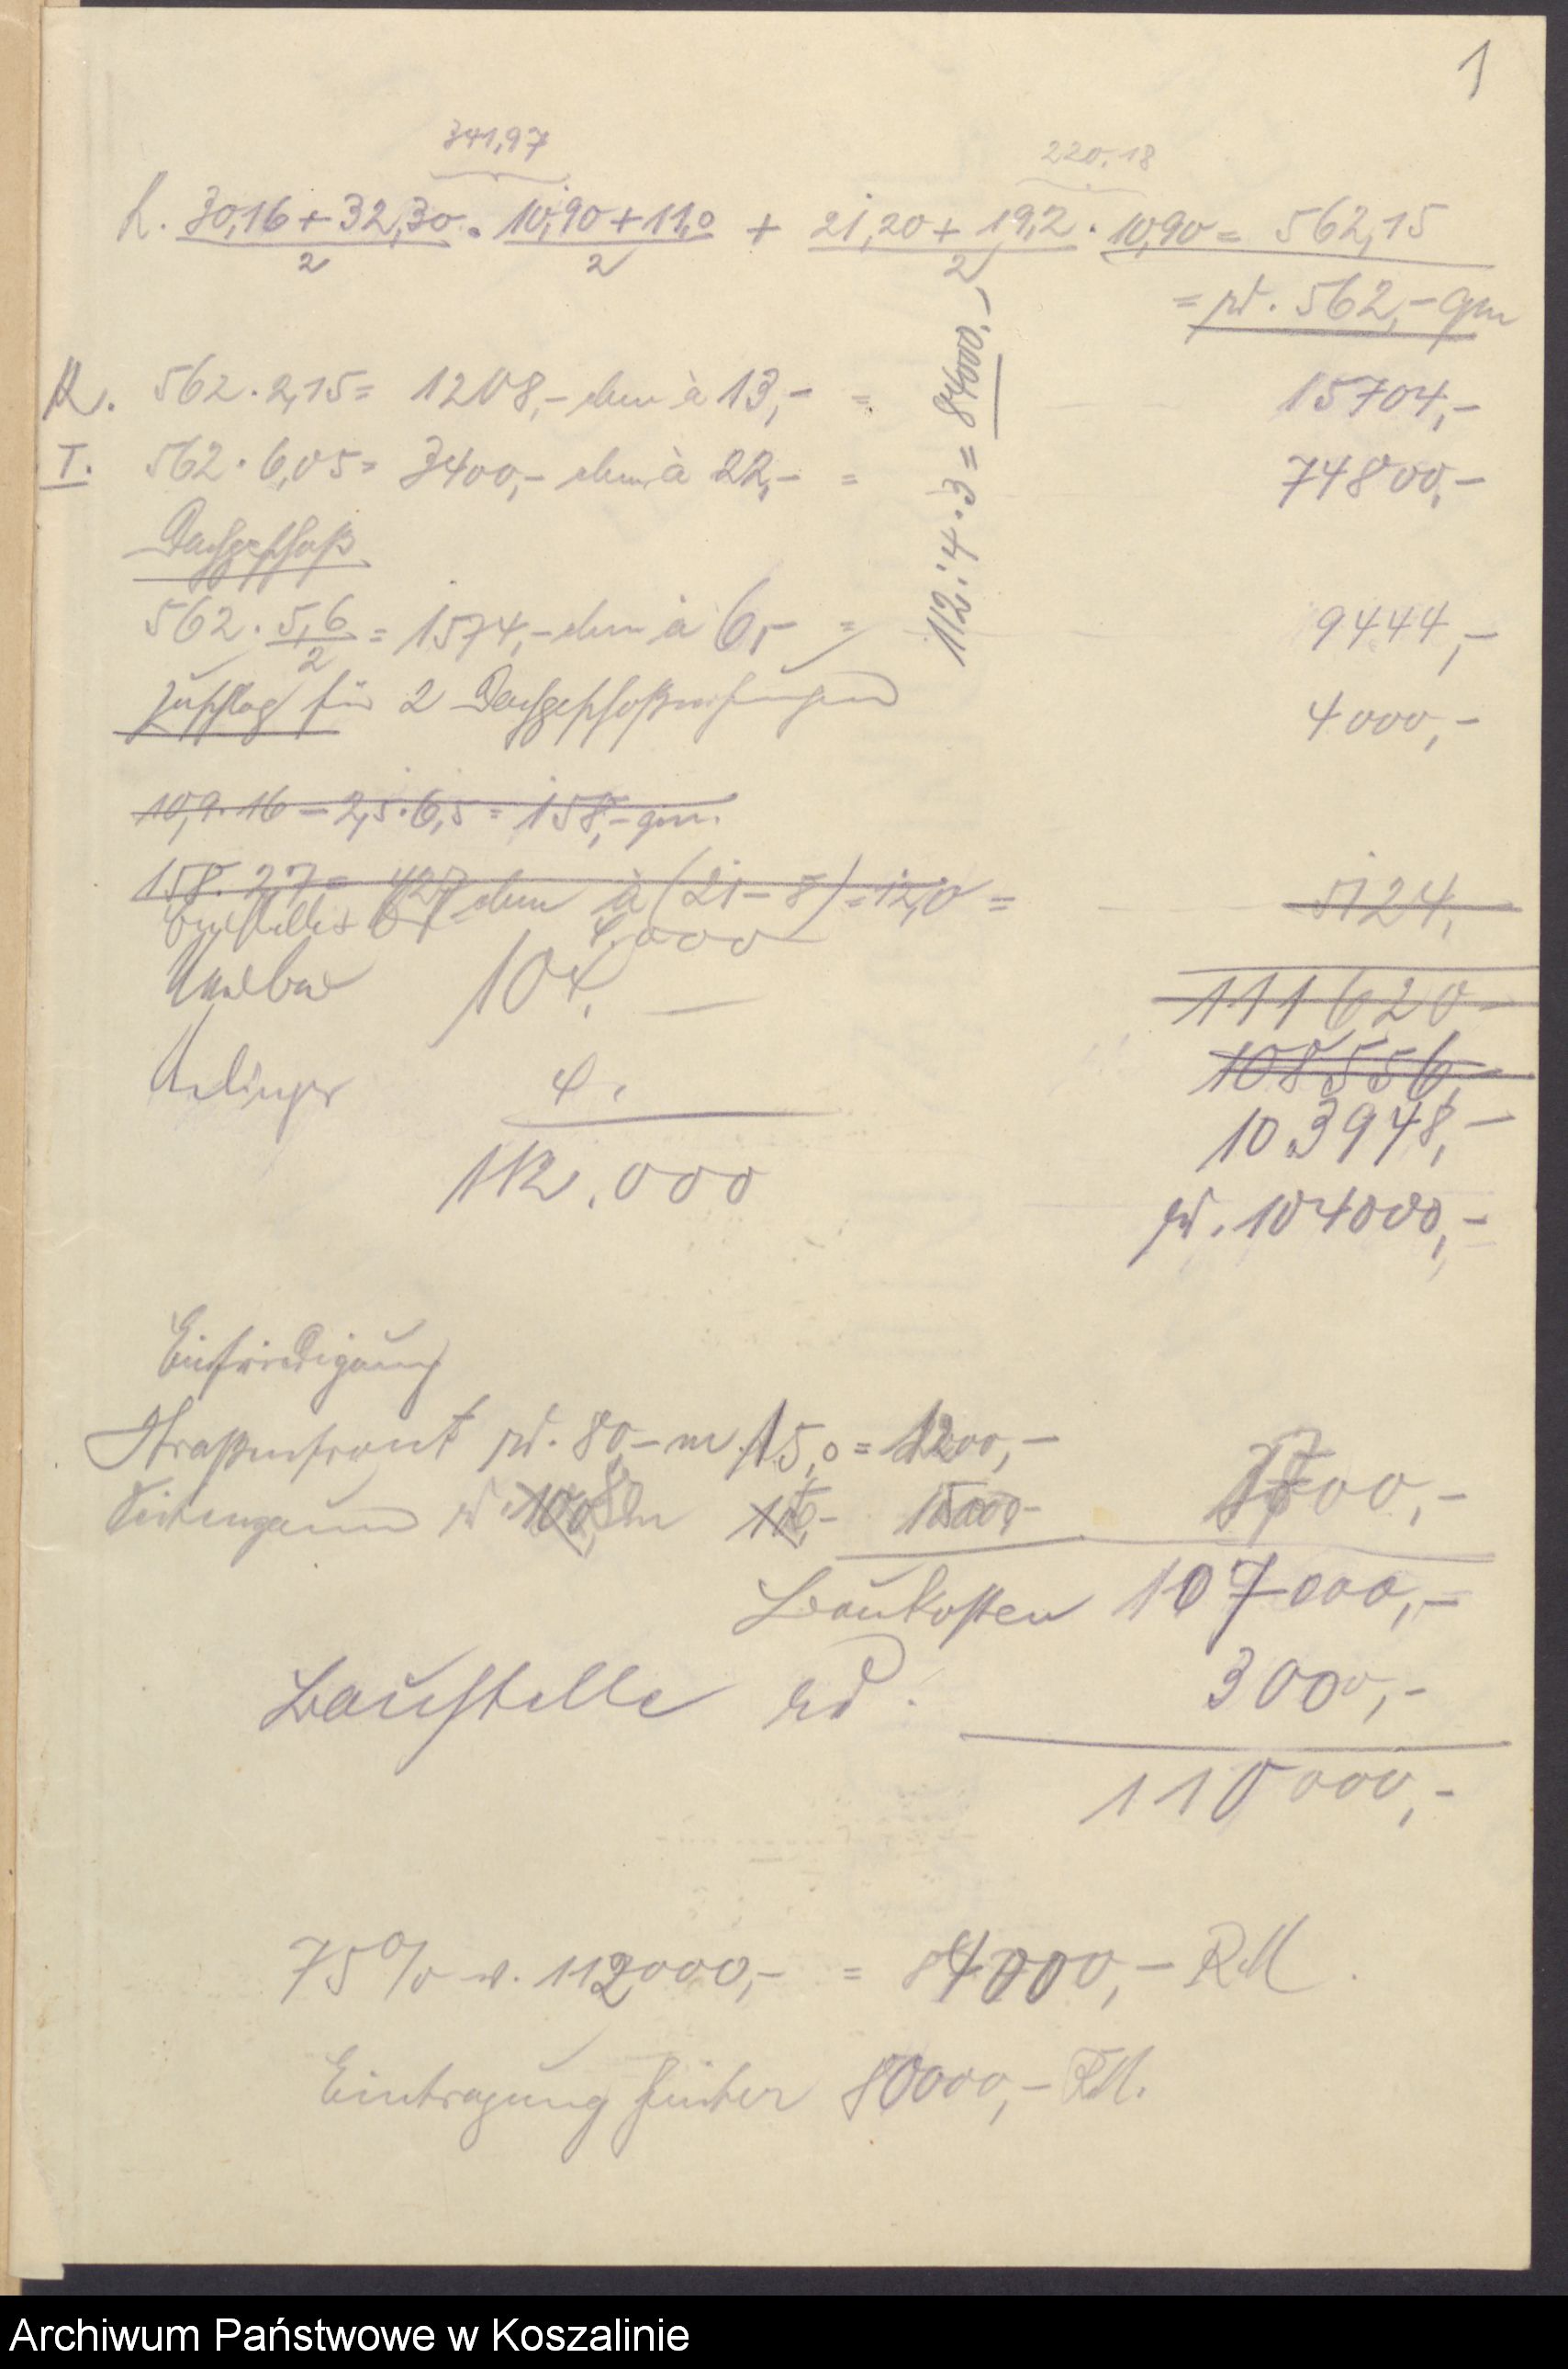 1
341,97 220,18
h. 30,16 + 32,30 / 2 . 10,90 + 11,0 / 2 + 21,20 + 19,2 / 2 . 10,90 = 562,15
= rd. 562,- qm
K. 562 . 2,15 = 1208,- cbm à 13,- = 15704,-
I. 562 . 6,05 = 3400,- cbm à 22,- = 74800,-
112 : 4 . 3 = 84000,-
Dachgeschoß
562 . 5,6 / 2 = 1574,- cbm à 6,- = 9444,-
Zuschlag für 2 Dachgeschoßwohnungen 4000,-
10,9 . 16 - 2,5 . 6,5 = 158,- qm.
158 . 2,7 = 427 cbm à (21 - 8) = 12,0 = 5124,
Baustelle 4.000
Neubau 104. — 111620 -
108556,-
Anlieger 4. 103948,-
112.000 rd. 104000,-
Einfriedigung
Straßenfront rd. 80,- m 15,0 = 1200,-
rd. 00,-
Baukosten 107000,-
Baustelle rd. 3000,-
110000,-
75% v. 112000,- = 84000,- RM.
Eintragung 80000,- RM.
Archiwum Państwowe w Koszalinie